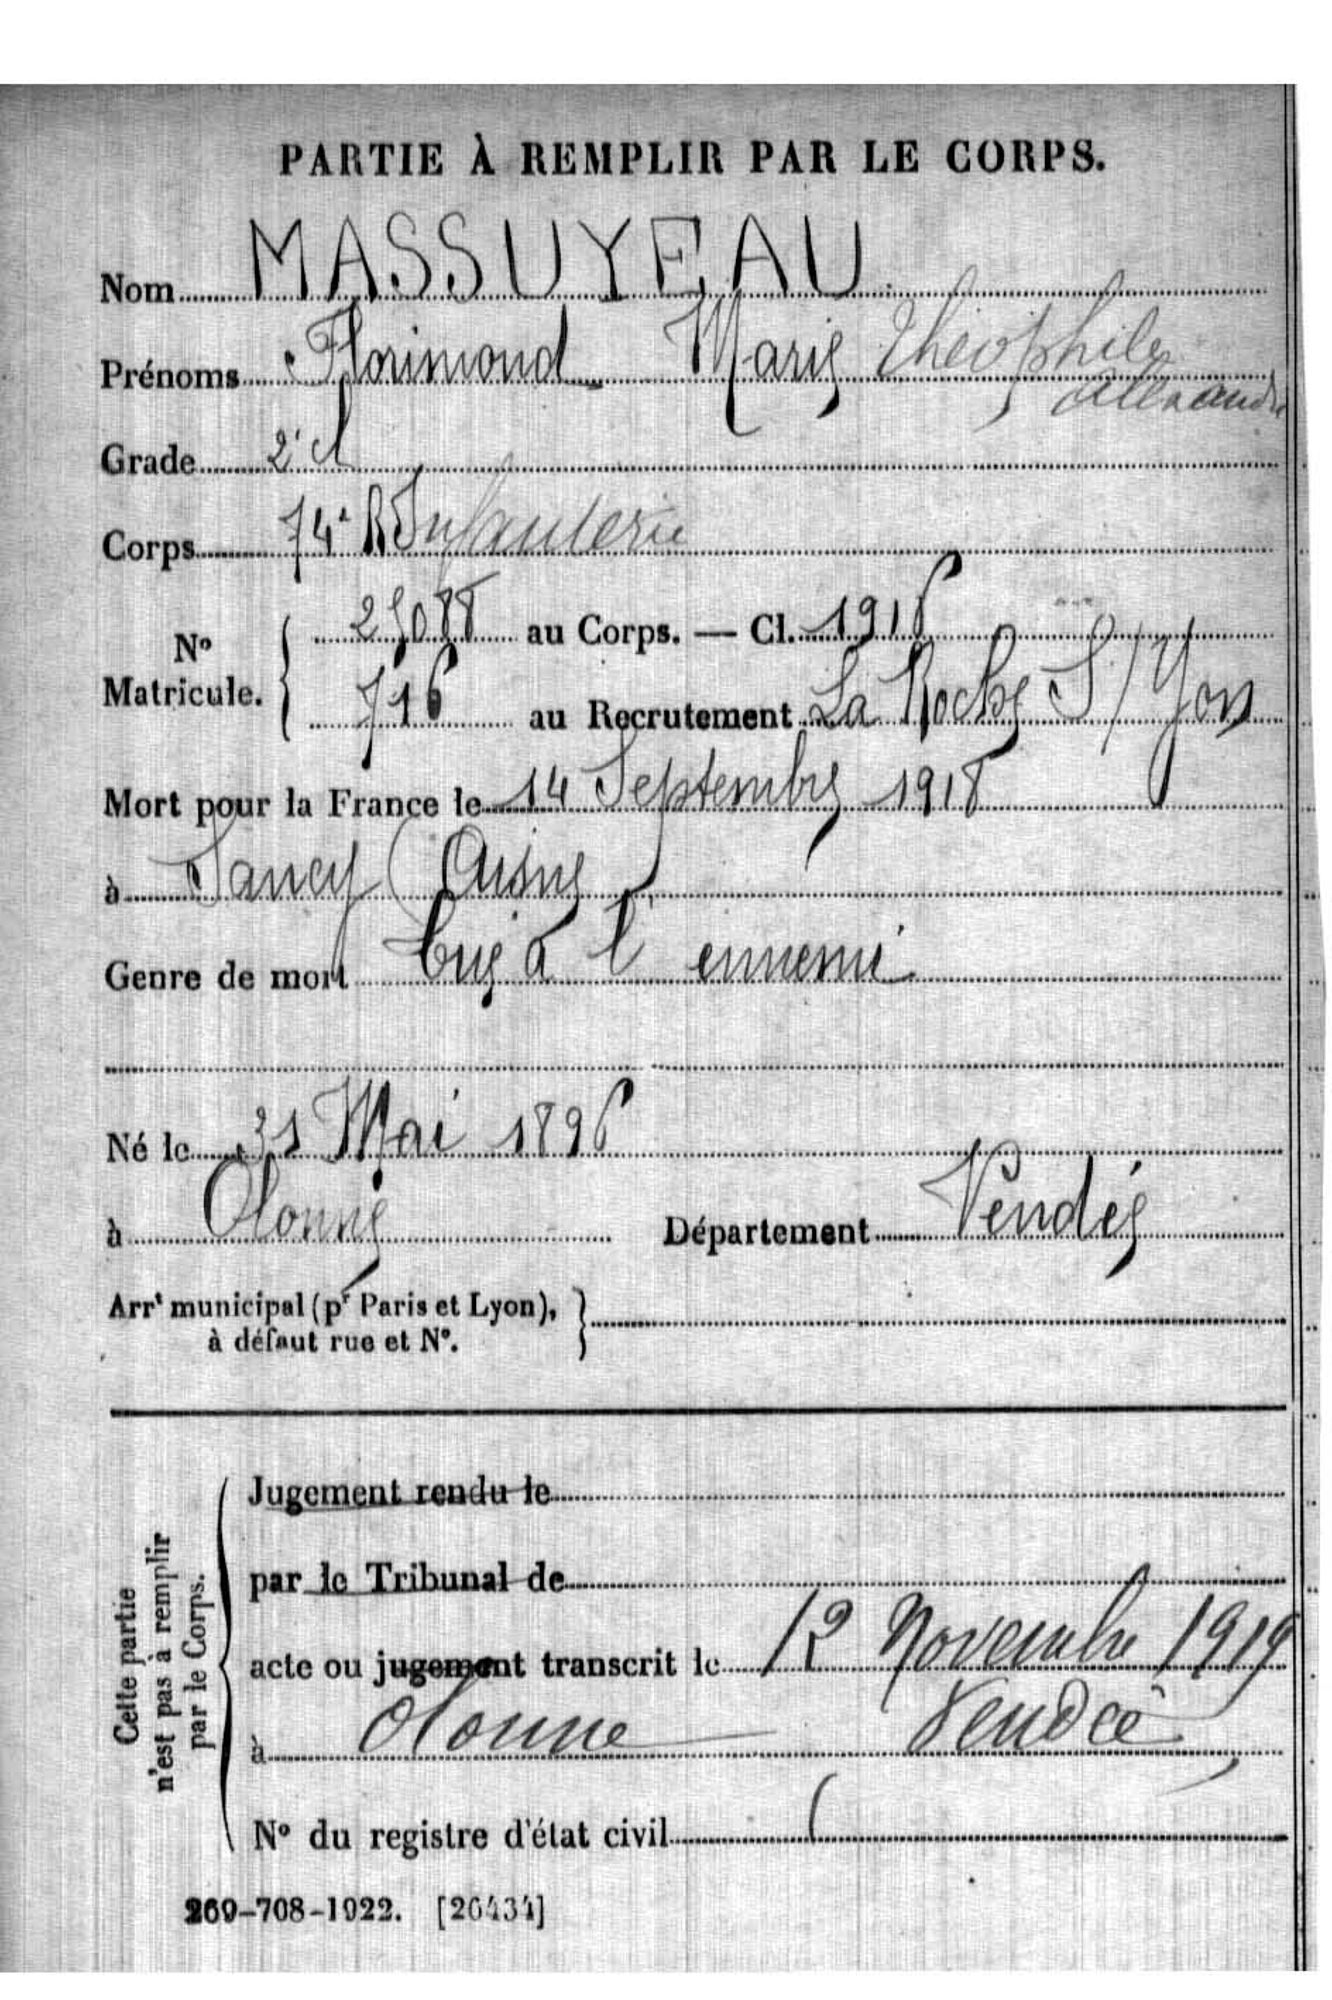 PARTIE À REMPLIR PAR LE CORPS.
Nom MASSUYEAU
Prénoms Florimond Marie Théophile
Alexandre
Grade 2e cl
Corps 74e R Infanterie
No Matricule. 25088 au Corps. — Cl. 1916
716 au Recrutement La Roche S/ Yon
Mort pour la France le 14 Septembre 1918
à Sancy (Aisne)
Genre de mort tué à l'ennemi
Né le 31 Mai 1896
à Olonne Département Vendée
Arrt municipal (pr Paris et Lyon),
à défaut rue et No.
Cette partie
n'est pas à remplir
par le Corps.
Jugement rendu le
par le Tribunal de
acte ou jugement transcrit le 12 Novembre 1919
à Olonne Vendée
No du registre d'état civil
269-708-1922. [26434]